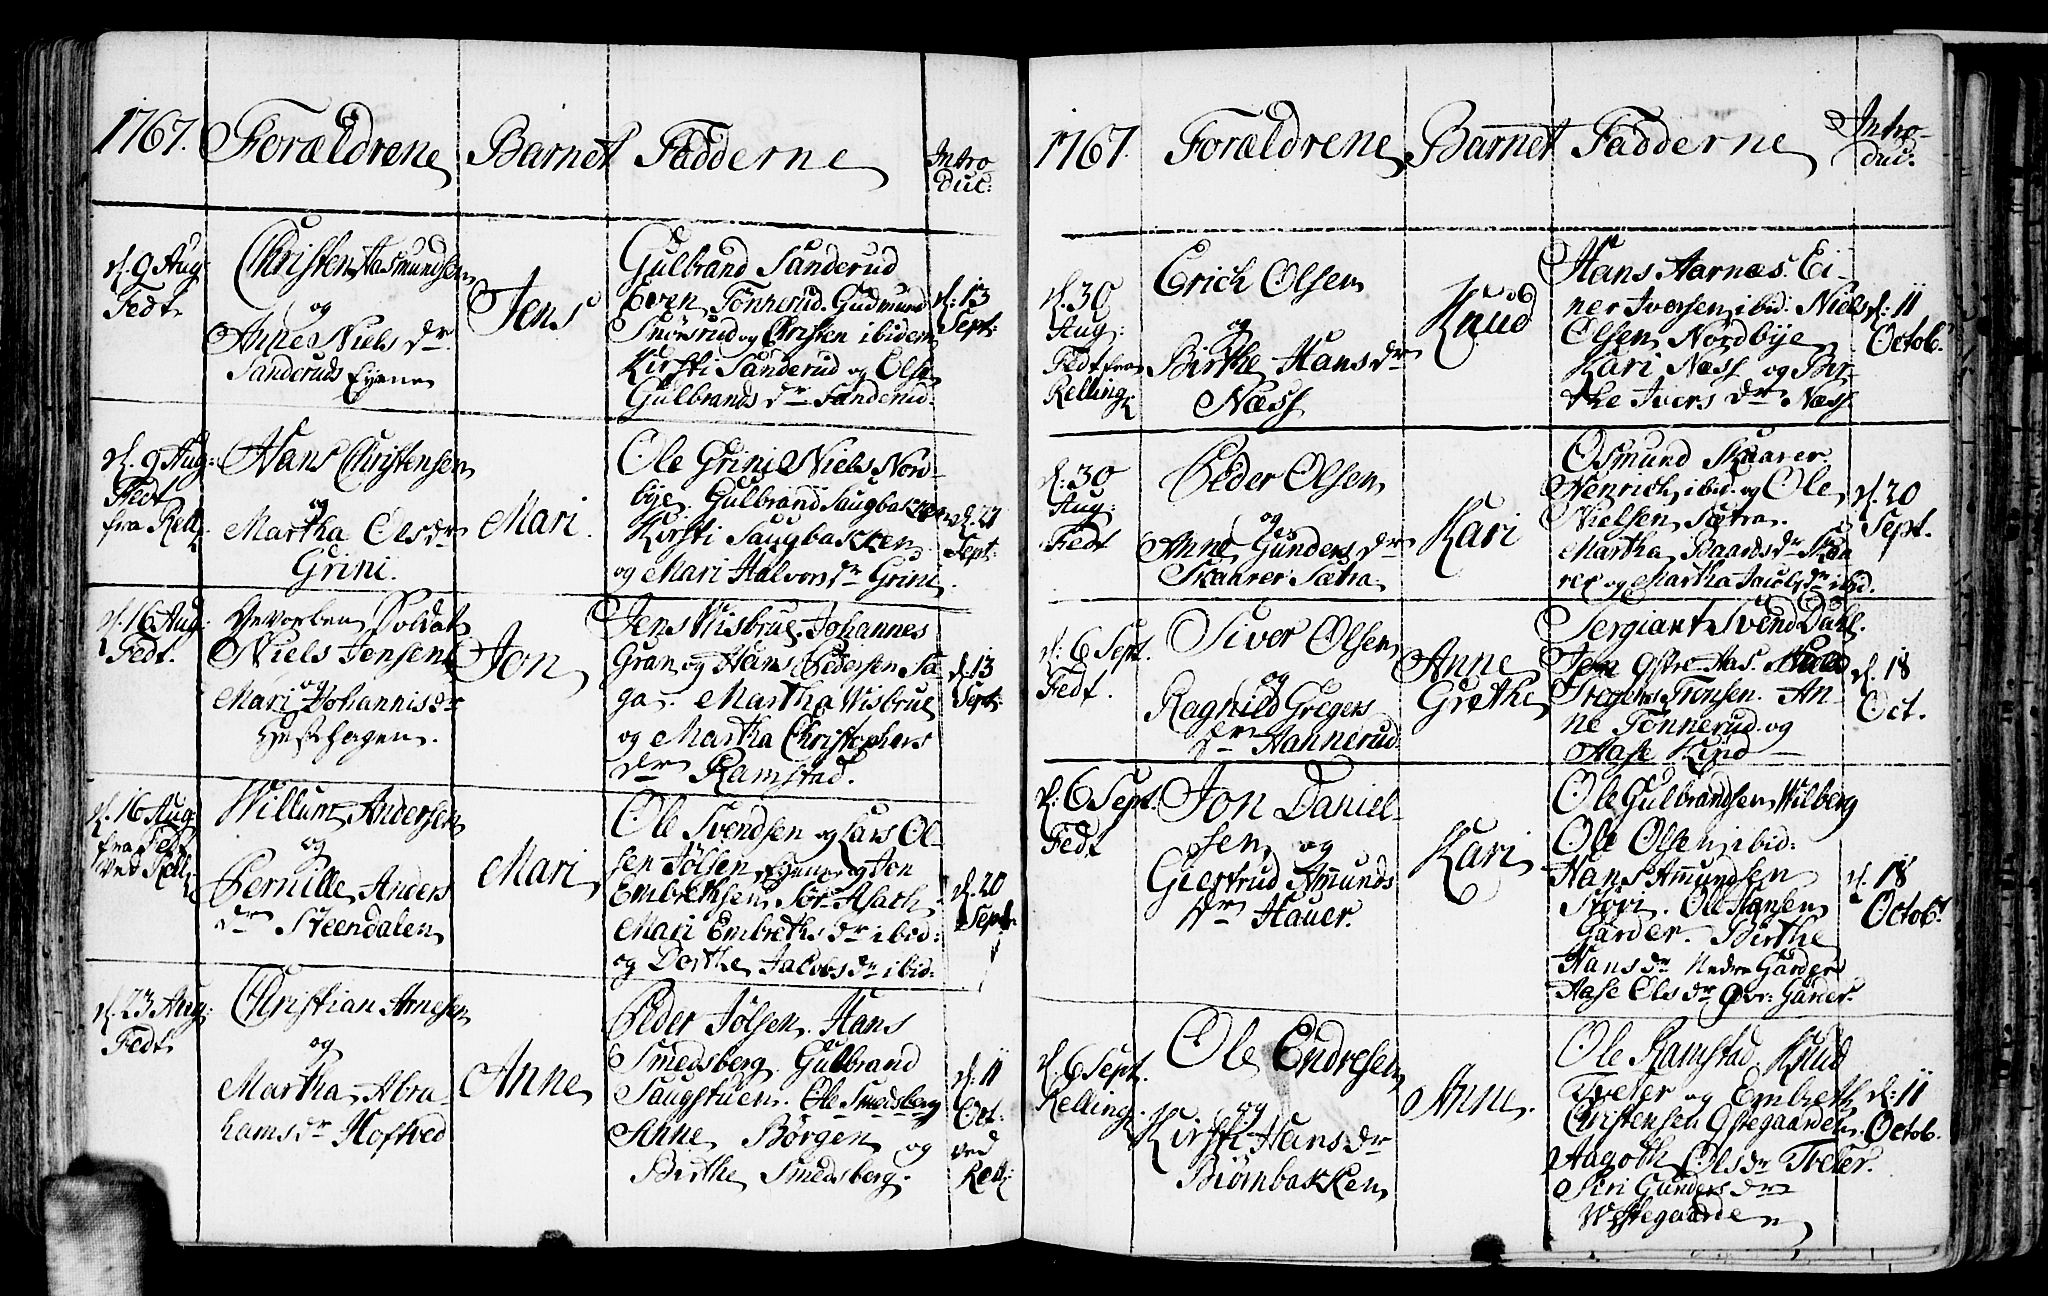 1767. Forældrene Barnet Fadderne Intro
duc:
d. 9 Aug:
Fedt.
Christen Aasmundsen
og
Anne Niels dr
Sanderuds Eyene
Jens
Gulbrand Sanderud
Even Tønnerud. Gudmund
Snørsrud og Christen ibidem
Kirsti Sanderud og Olea
Gulbrands dr Sanderud.
d: 13
Sept:
d. 9 Aug:
Fedt
fra Rell.
Hans Christensen
og
Martha Olsdr
Grini.
Mari.
Ole Grini Niels Nord-
bye. Gulbrand Saugbakken
Kirsti Saugbakken
og Mari Halvors dr Grini
d. 27
Sept:
d. 16 Aug:
Fedt.
Soldat
Niels Jensen
og
Mari Johannisdr
Hestehagen.
Jon
Jens Wisbrue. Johannes
Gran og Hans Pedersen Sa-
ga. Martha Wisbrue
og Martha Christophers
dr Ramstad.
d. 13
Sept:
d. 16 Aug
fra Fedt
ved Rell.
Willum Andersen
og
Pernille Anders
dr Steendalen
Mari
Ole Svendsen og Lars Ol-
sen Jølsen Eyene og Jon
Embrethsen Sør. Asath
Mari Embreths dr ibid:
og Dorthe Jacobs dr ibid:
d. 20
Sept:
d. 23 Aug:
Fedt
Christian Arnesen
og
Martha Abra
hamsdr Hofsved
Anne
Peder Jølsen. Hans
Smedsberg. Gulbrand
Saugstuen. Ole Smedsberg
Anne Børgen og
Birthe Smedsberg.
d. 11
Oct:
ved
Rell:
1767. Forældrene Barnet Fadderne Intro-
duc:
d. 30
Aug:
Fedt fra
Relling
Erich Olsen
og
Birthe Hans dr
Næss
Knud
Hans Aarnæs. Ei-
ner Iversen ibid: Niels
Olsen Nordbye
Kari Næss og Bir-
the Ivers dr Næss
d: 11
Octob.
d. 30
Aug:
Fedt
Peder Olsen
og
Anne Gunders dr
Skaarer Sætra
Kari
Osmund Skaarer
Henrich ibid. og Ole
Nielsen Sætra.
Martha Baards dr Skaa
rer og Martha Jacobs dr ibid.
d. 20
Sept.
d. 6 Sept.
Fedt.
Siver Olsen
og
Ragnild Gregers
dr Hannerud
Anne
Grethe
Sergiant Svend Dahl.
Østre Aas.
Tronsen. An-
ne Tønnerud og
Aase Kind
d. 18
Oct.
d. 6 Sept.
Fedt
Jon Daniel-
sen og
Giertrud Amunds
dr Hauer.
Kari
Ole Gulbrandsen Wilberg
Ole Olsen ibid:
Hans Amundsen
Stovi. Ole Hansen
Garder. Birthe
Hans dr Nedre Garder
Aase Els dr Øvr: Garder.
d. 18
Octob.
d. 6 Sept.
Relling.
Ole Endresen
og
Kirsti Hans dr
Biørnbakken
Anne.
Ole Ramstad. Knud
Tveter og Embreth
Christensen Østegaarden.
Aagoth Olsdr Tveter.
Siri Gunders dr
Westegaarden
d: 11
Octob.